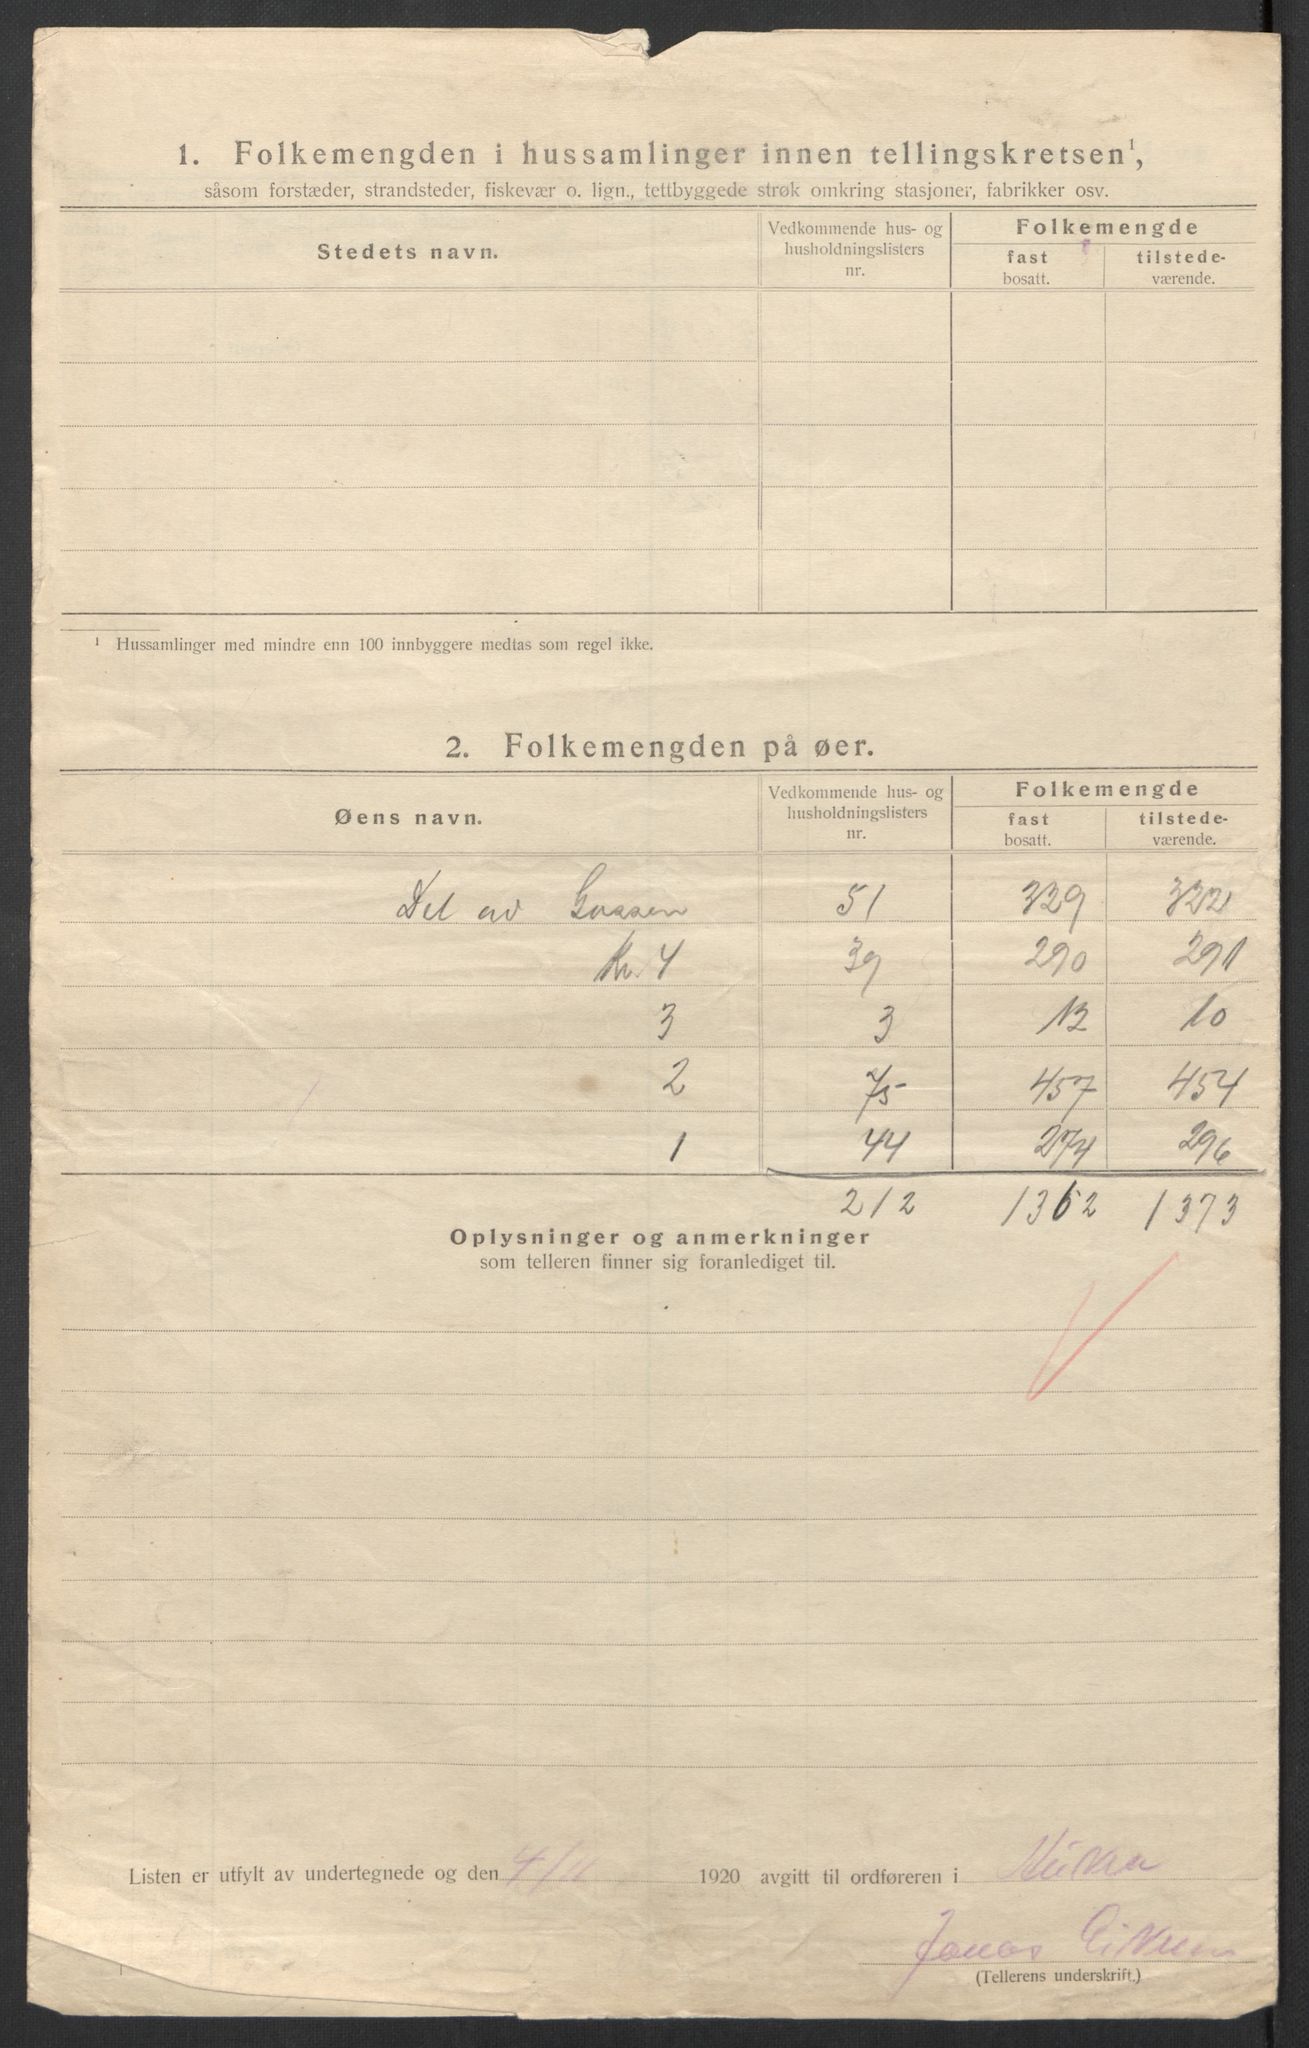 1. Folkemengden i hussamlinger innen tellingskretsen¹,
såsom forstæder, strandsteder, fiskevær o. lign., tettbyggede strøk omkring stasjoner, fabrikker osv.
Stedets navn.
Vedkommende hus- og husholdningslisters nr.
Folkemengde
fast bosatt.
tilstede-værende.
¹ Hussamlinger med mindre enn 100 innbyggere medtas som regel ikke.
2. Folkemengden på øer.
Øens navn.
Vedkommende hus- og husholdningslisters nr.
Folkemengde
fast bosatt.
tilstede-værende.
Del av Gossen 51 329 322
Kr. 4 39 290 291
3 3 12 10
2 75 457 454
1 44 274 296
212 1362 1373
Oplysninger og anmerkninger
som telleren finner sig foranlediget til.
Listen er utfylt av undertegnede og den 4/11 1920 avgitt til ordføreren i
Jonas
(Tellerens underskrift.)